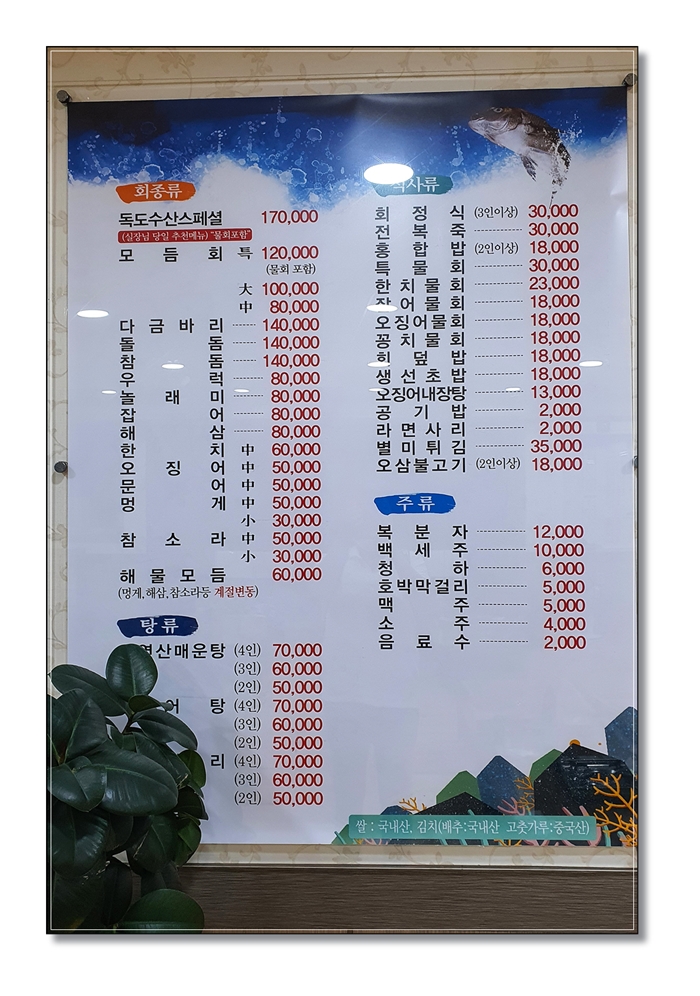 회종류
독도수산스페셜 170,000
(실장님 당일 추천메뉴) "물회포함"
모듬회 특 120,000
(물회 포함)
大 100,000
中 80,000
다금바리 140,000
돌돔 140,000
참돔 140,000
우럭 80,000
놀래미 80,000
잡어 80,000
해삼 80,000
한치 中 60,000
오징어 中 50,000
문어 中 50,000
멍게 中 50,000
小 30,000
참소라 中 50,000
小 30,000
해물모듬 60,000
(멍게,해삼,참소라등 계절변동)
탕류
산매운탕 (4인) 70,000
(3인) 60,000
(2인) 50,000
어탕 (4인) 70,000
(3인) 60,000
(2인) 50,000
리 (4인) 70,000
(3인) 60,000
(2인) 50,000
식사류
회정식 (3인이상) 30,000
전복죽 30,000
홍합밥 (2인이상) 18,000
특물회 30,000
한치물회 23,000
잡어물회 18,000
오징어물회 18,000
꽁치물회 18,000
회덮밥 18,000
생선초밥 18,000
오징어내장탕 13,000
공기밥 2,000
라면사리 2,000
별미튀김 35,000
오삼불고기 (2인이상) 18,000
주류
복분자 12,000
백세주 10,000
청하 6,000
호박막걸리 5,000
맥주 5,000
소주 4,000
음료수 2,000
쌀 : 국내산, 김치(배추:국내산 고춧가루:중국산)